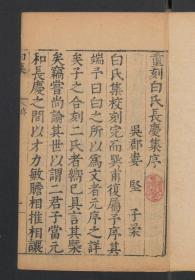 重刻白氏長慶集序
吳郡婁堅子柔
白氏集校刻完而巽甫復屬予序其
端予曰白之所以為文者元序之詳
矣予之合刻二氏者嚮巳具言其槩
矣竊嘗尚論其世以謂二君子當元
和長慶之間以才力敏贍相推相讓